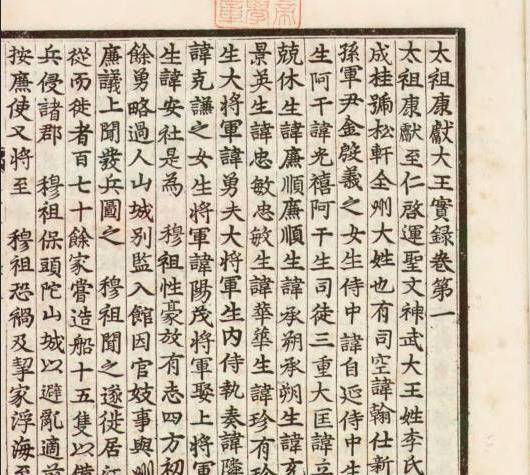 太祖康獻大王實録卷第一
太祖康獻至仁啓運聖文神武大王姓李氏
成桂號松軒全州大姓也有司空諱翰仕新
孫軍尹金殷義之女生侍中 諱自延侍中生
生阿干諱光禧阿干生司徒三重大匡諱立
兢休生諱廉順廉順生諱承朔承朔生諱充
景英生諱忠敏忠敏生諱華華生諱珍有珍
生大將軍諱勇夫大將軍生内侍執奏諱隣
諱克謙之女生將軍諱陽茂將軍娶上將軍
生諱安社是爲 穆祖性豪放有志四方初
餘勇略過人山城別監入館因官妓事與州
廉議上聞發兵圖之 穆祖聞之遂徙居江
從而徙者百七十餘家嘗造船十五隻以備
兵侵諸郡 穆祖保頭陀山城以避亂適前
按廉使又將至 穆祖恐禍及挈家浮海至